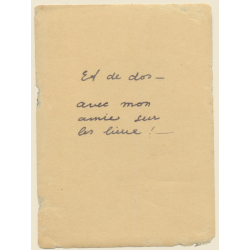 Et de dos —
avec mon
amie sur
les lieue ! —